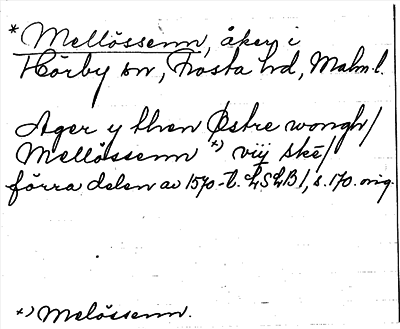 * Mellössenn, åker i
Hörby sn, Frosta hd, Malm. l.
Ager y then Østre wongh/
Mellössenn *) viij skē/
förra delen av 1570-t. LSLB 1, s. 170. orig.
*) Melössenn.